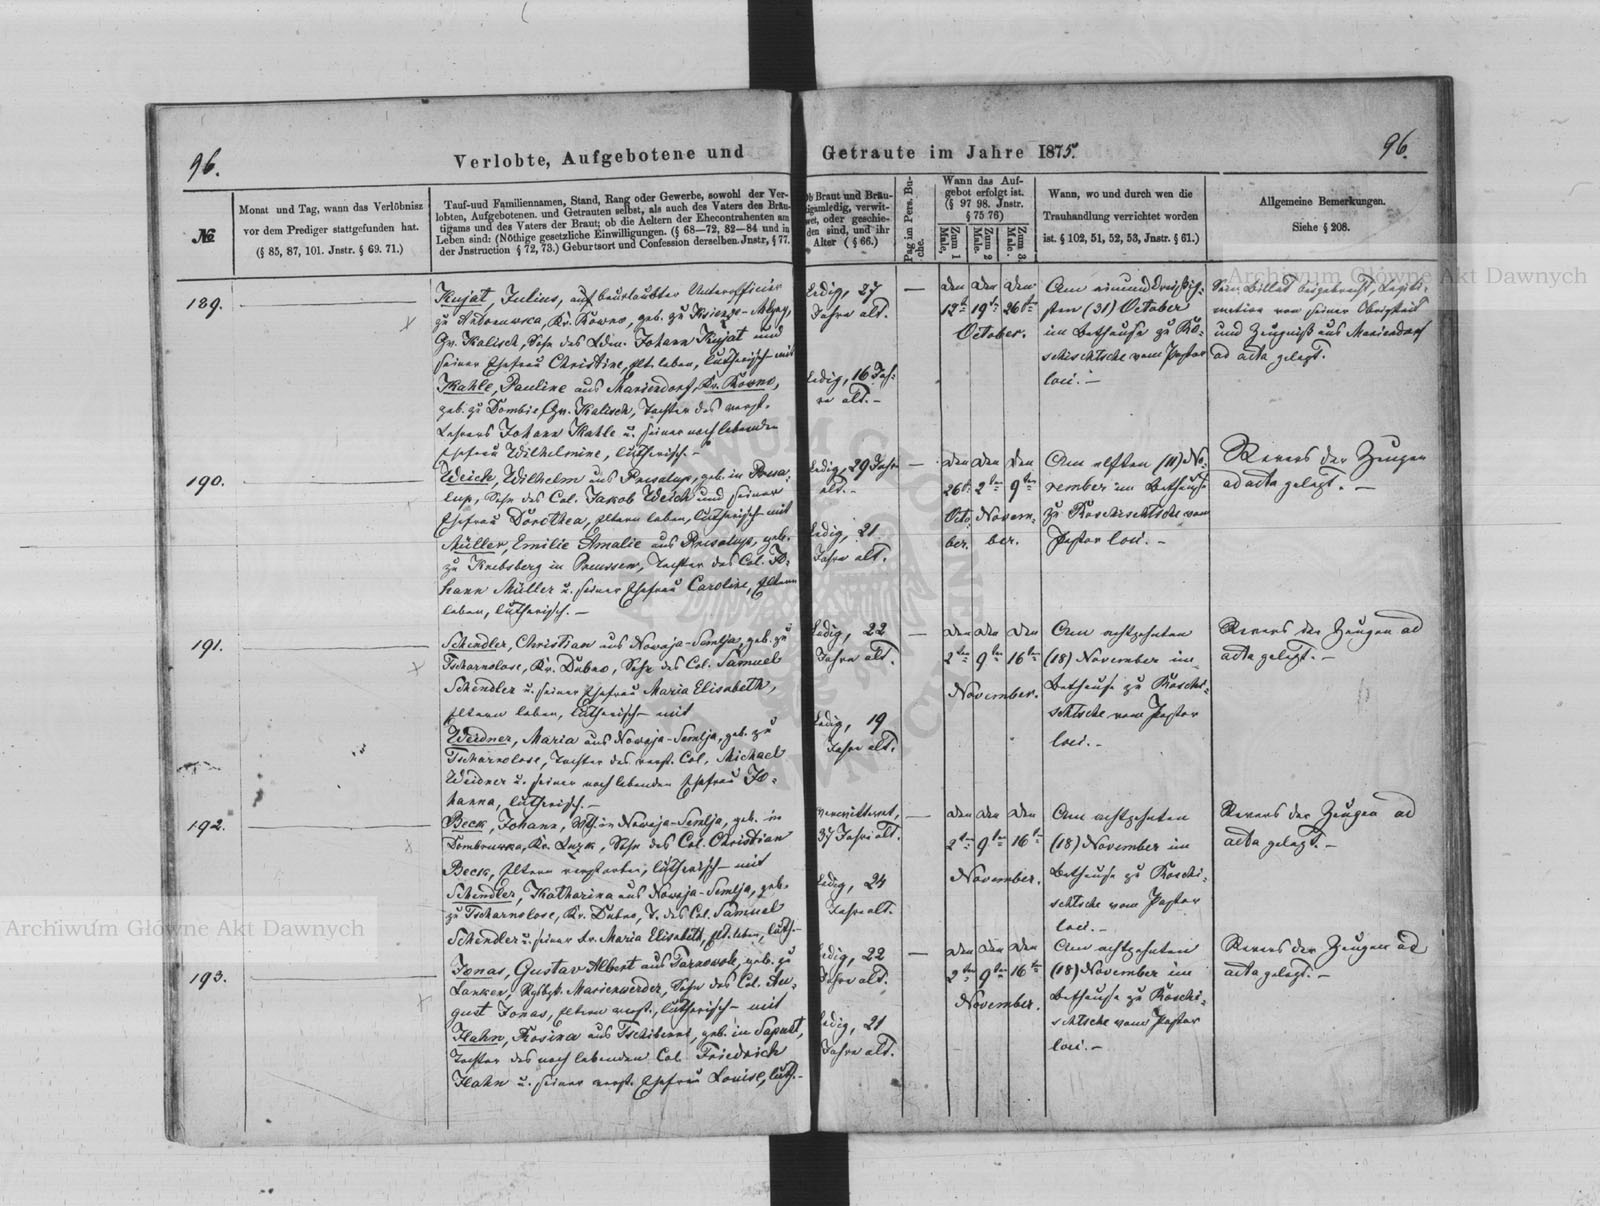 96.
Verlobte, Aufgebotene und Getraute im Jahre 1875.
96.
№
Monat und Tag, wann das Verlöbnisz
vor dem Prediger stattgefunden hat.
(§ 85, 87, 101. Jnstr. § 69. 71.)
Tauf-uud Familiennamen, Stand, Rang oder Gewerbe, sowohl der Ver-
lobten, Aufgebotenen. und Getrauten selbst, als auch des Vaters des Bräu-
tigams und des Vaters der Braut; ob die Aeltern der Ehecontrahenten am
Leben sind: (Nöthige gesetzliche Einwilligungen. (§ 68—72, 82—84 und in
der Jnstruction § 72, 73.) Geburtsort und Confession derselben. Jnstr, § 77.
Ob Braut und Bräu-
tigam ledig, verwit-
wet, oder geschie-
den sind, und ihr
Alter ( § 66.)
Pag im Pers. Bu-
che.
Wann das Auf-
gebot erfolgt ist.
(§ 97 98. Jnstr.
§ 75 76)
Zum 1 Male,
Zum 2 Male.
Zum 3 Male.
Wann, wo und durch wen die
Trauhandlung verrichtet worden
ist. § 102, 51, 52, 53, Jnstr. § 61.)
Allgemeine Bemerkungen.
Siehe § 208.
189.
Kujat, Julius, auf beurlaubter Unterofficier
zu Andruewka, Kr. Kowno, geb. zu
Gv. Kalisch, Sohn des Johann Kujat und
seiner Ehefrau Christine, Elt. leben, lutherisch – mit
Kahle, Pauline aus Mariendorf, Kr. Kowno,
geb. zu Dombie, Gv. Kalisch, Tochter des verst.
Lehrers Johann Kahle u. seiner noch lebenden
Ehefrau Wilhelmine, lutherisch. –
Ledig, 27
Jahre alt.
Ledig, 16 Jah-
re alt. –
—
den den den
12t 19t 26ten
October.
Am einunddreißig-
sten (31) October
im Bethause zu Ro-
schischtsche vom Pastor
loci. –
und Zeugniß aus Mariendorf
ad acta gelegt.
190.
Weich, Wilhelm aus Presalup, geb. in Presa-
lup, Sohn des Col. Jakob Weich und seiner
Ehefrau Dorothea, Eltern leben, lutherisch – mit
Müller, Emilie Amalie aus Presalup, geb.
zu Krebsberg in Preussen, Tochter des Col. Jo-
hann Müller u. seiner Ehefrau Caroline, Eltern
leben, lutherisch. –
Ledig, 29 Jahre
alt. –
Ledig, 21
Jahre alt.
—
den den den
26t. 2ten 9ten
Octo- Novem-
ber. ber.
Am elften (11) No-
vember im Bethause
zu Roschischtsche vom
Pastor loci. –
Revers der Zeugen
ad acta gelegt. –
191.
Schindler, Christian aus Nowaja-Semlja, geb. zu
Tscharnolose, Kr. Dubno, Sohn des Col. Samuel
Schindler u. seiner Ehefrau Maria Elisabeth,
Eltern leben, lutherisch – mit
Weidner, Maria aus Nowaja-Semlja, geb. zu
Tscharnolose, Tochter des verst. Col. Michael
Weidner u. seiner noch lebenden Ehefrau Jo-
hanna, lutherisch. –
Ledig, 22
Jahre alt.
Ledig, 19
Jahre alt.
—
den den den
2ten 9ten 16ten
November.
Am achtzehnten
(18) November im
Bethause zu Roschi-
schtsche vom Pastor
loci. –
Revers der Zeugen ad
acta gelegt. –
192.
Beck, Johann, in Nowaja-Semlja, geb. in
Dombrowka, Kr. Luzk, Sohn des Col. Christian
Beck, Eltern verstorben, lutherisch – mit
Schindler, Katharina aus Nowaja-Semlja, geb.
zu Tscharnolose, Kr. Dubno, T. des Col. Samuel
Schindler u. seiner Fr. Maria Elisabeth, Elt. leben, luth. –
verwittwet,
37 Jahre alt.
Ledig, 24
Jahre alt.
—
den den den
2ten 9ten 16ten
November.
Am achtzehnten
(18) November im
Bethause zu Roschi-
schtsche vom Pastor
loci. –
Revers der Zeugen ad
acta gelegt. –
193.
Jonas, Gustav Albert aus Tarnowok, geb. zu
Lanken, Rgbzk. Marienwerder, Sohn des Col. Au-
gust Jonas, Eltern verst., lutherisch – mit
Hahn, Rosina aus geb. in Sapust,
Tochter des noch lebenden Col. Friedrich
Hahn u. seiner verst. Ehefrau Louise, luth. –
Ledig, 22
Jahre alt.
Ledig, 21
Jahre alt.
—
den den den
2ten 9ten 16ten
November.
Am achtzehnten
(18) November im
Bethause zu Roschi-
schtsche vom Pastor
loci. –
Revers der Zeugen ad
acta gelegt. –
Archiwum Główne Akt Dawnych
Archiwum Główne Akt Dawnych